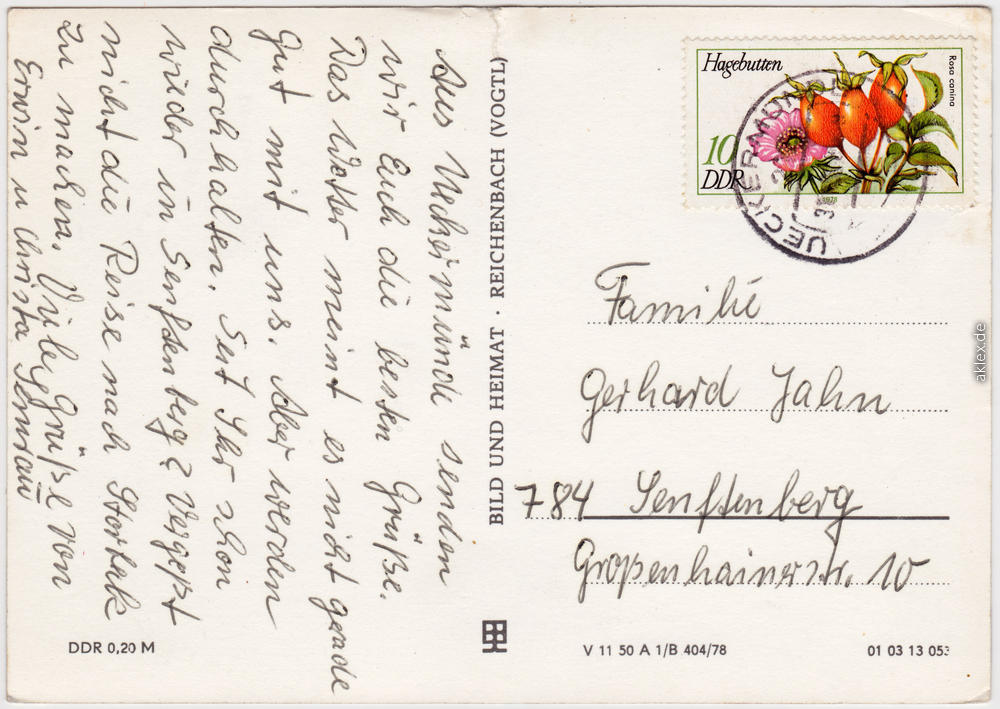 Aus Ueckermünde senden
wir Euch die besten Grüße.
Das Wetter meint es nicht gerade
gut mit uns. Aber werden
durchhalten. Seit Ihr schon
wieder in Senftenberg? Vergeßt
nicht die Reise nach Storkak
zu machen. Viele Grüße von
Erwin u Christa
BILD UND HEIMAT · REICHENBACH (VOGTL)
Hagebutten
Rosa canina
10
DDR
1978
UECKERMÜNDE
Familie
Gerhard Jahn
784 Senftenberg
Großenhainerstr. 10
DDR 0,20 M
V 11 50 A 1/B 404/78
01 03 13 053
aklex.de